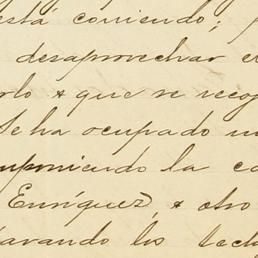 está corriendo;
desaprovechar e
rlo & que se reco
Se ha ocupado
uponiendo la ca
Enríquez, & otro
avando los tech